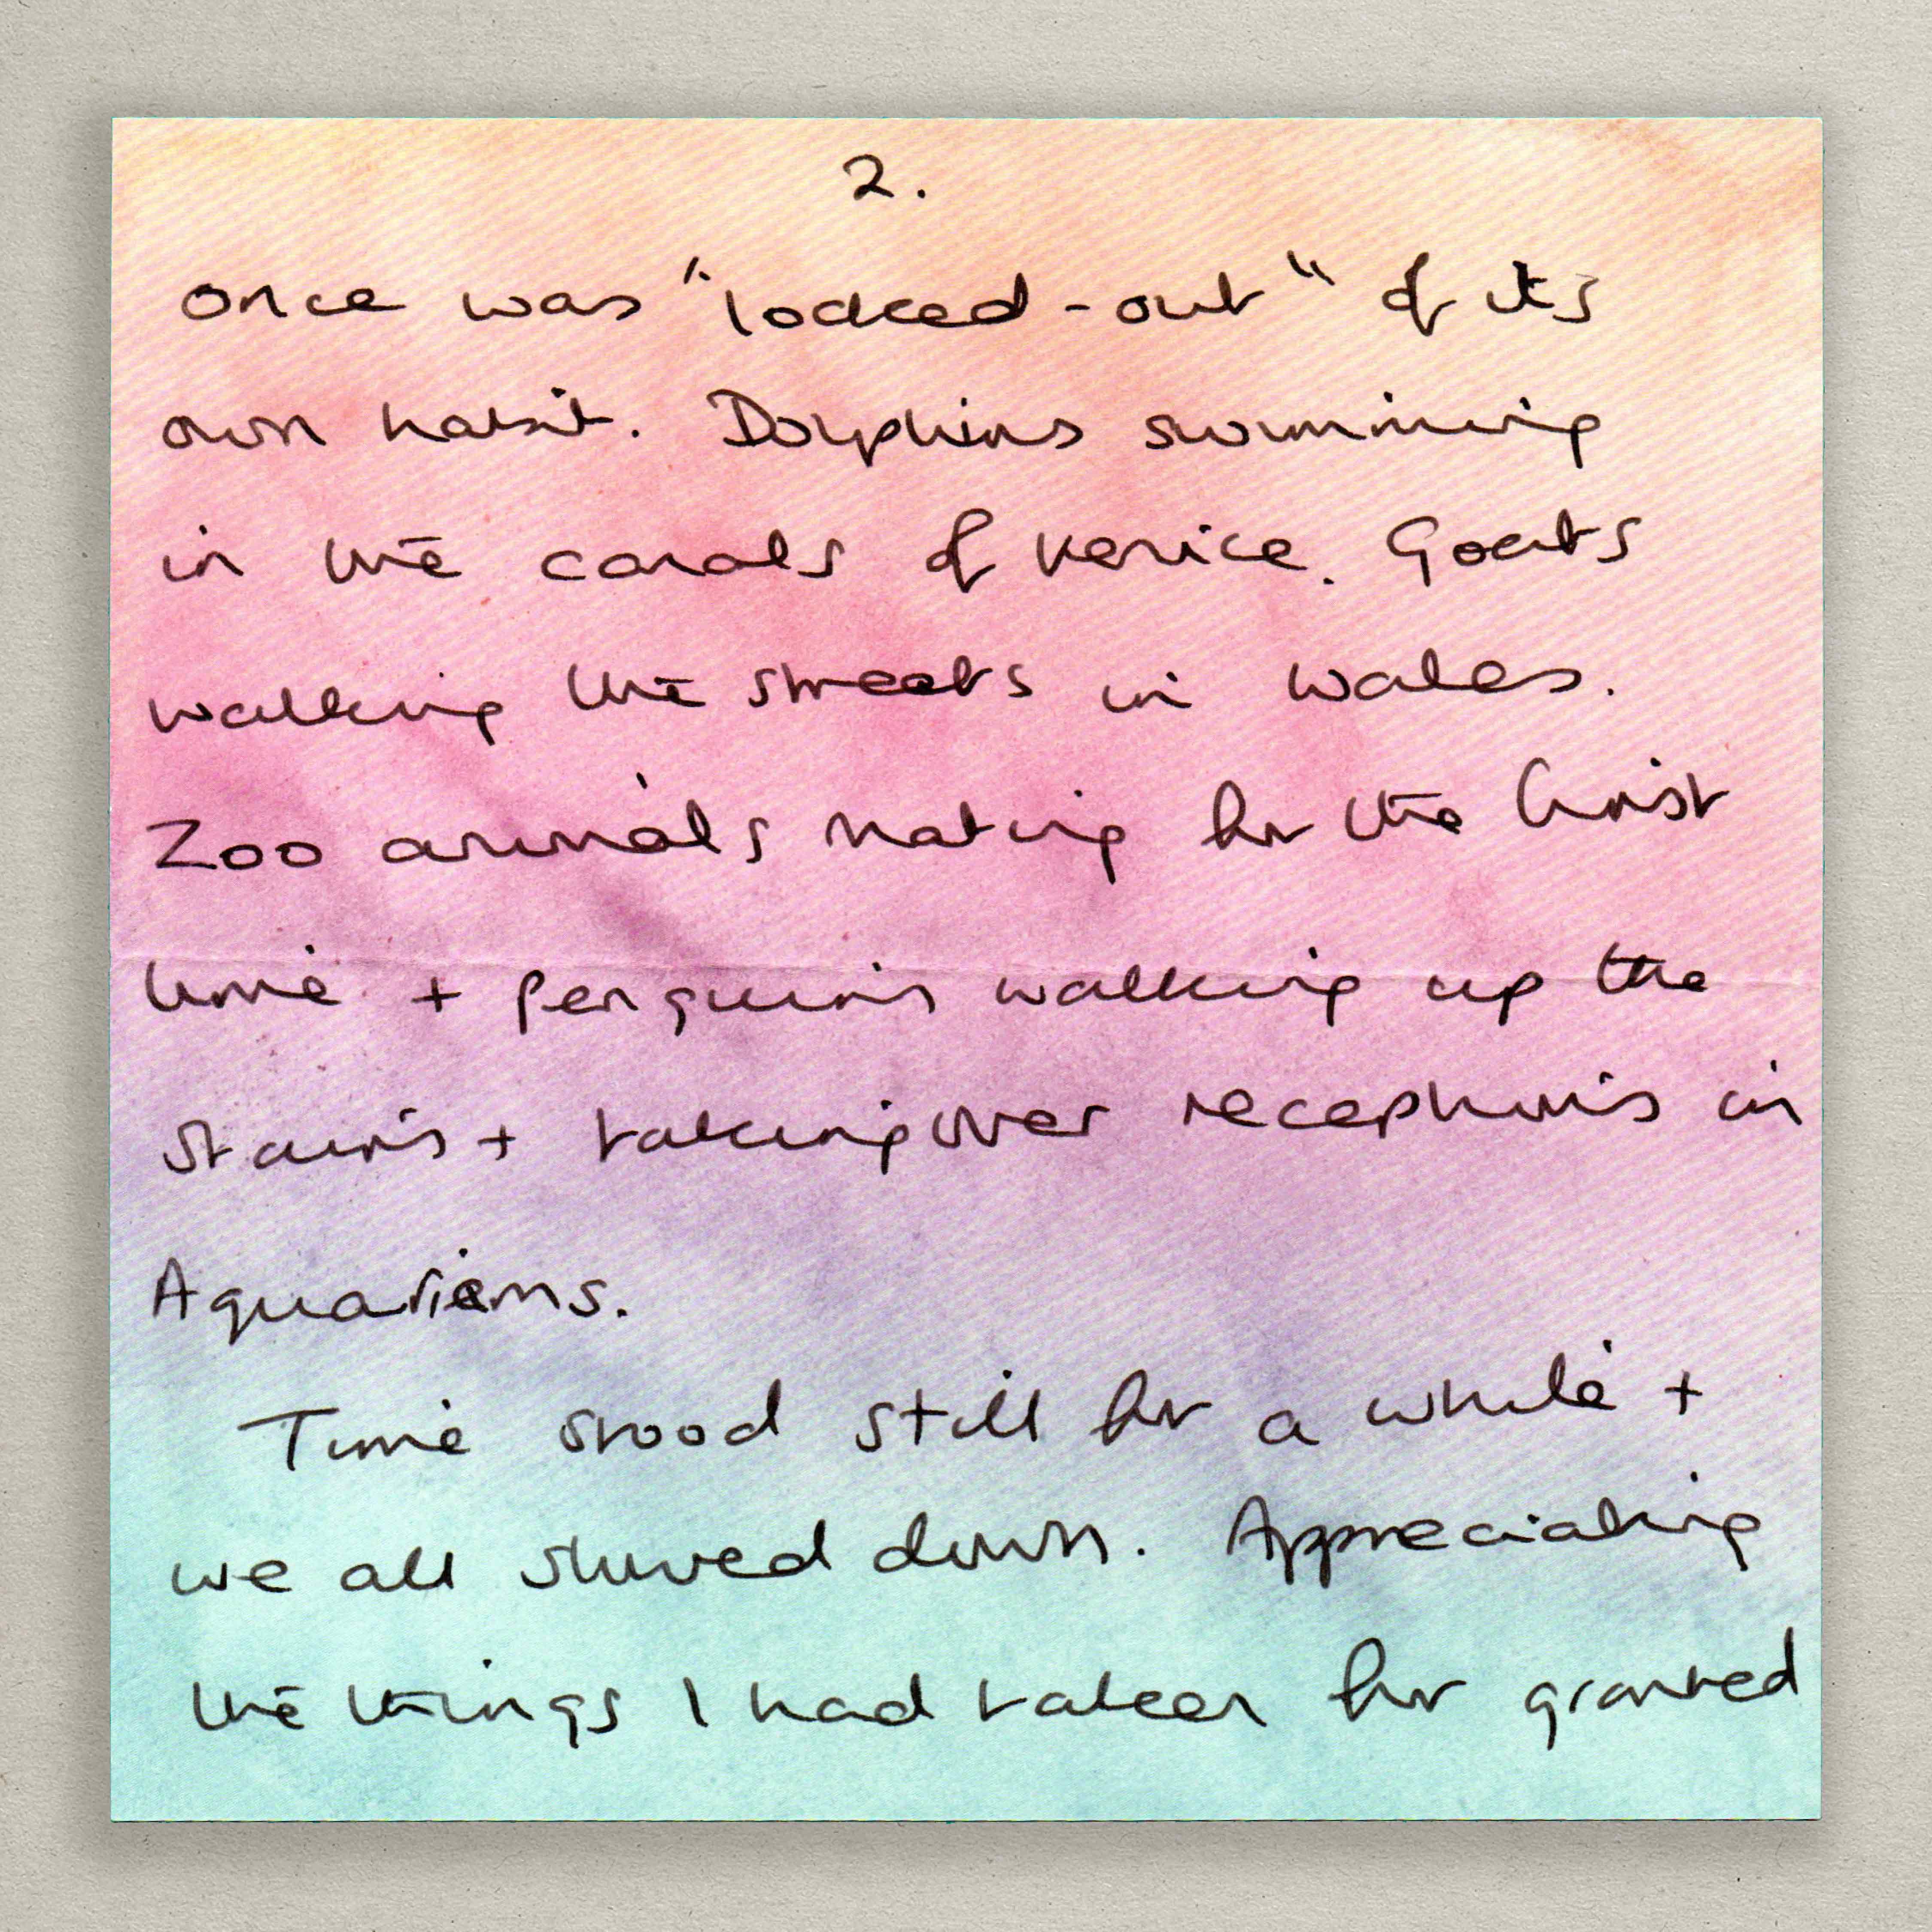 2.
once was "locked-out" of its
own habit. Dolphins swimming
in the canals of Venice. Goats
walking the streets in Wales.
Zoo animals mating for the first
time + penguins walking up the
stairs + taking over receptions in
Aquariums.
Time stood still for a while +
we all slowed down. Appreciating
the things I had taken for granted